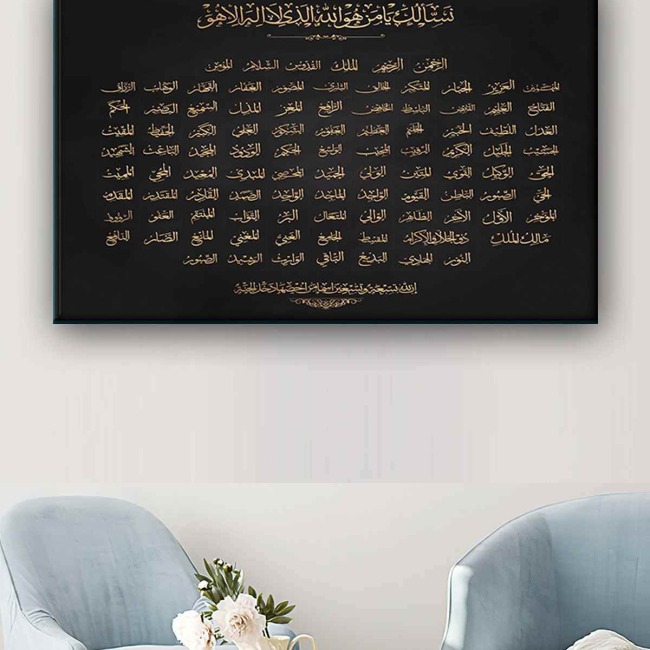 نسألك يا من هو الله الذي لا إله إلا هو
الرحمن الرحيم الملك القدوس السلام المؤمن
المهيمن العزيز الجبار المتكبر الخالق البارئ المصور الغفار القهار الوهاب الرزاق
الفتاح العليم القابض الباسط الخافض الرافع المعز المذل السميع البصير الحكم
العدل اللطيف الخبير الحليم العظيم الغفور الشكور العلي الكبير الحفيظ المقيت
الحسيب الجليل الكريم الرقيب المجيب الواسع الحكيم الودود المجيد الباعث الشهيد
الحق الوكيل القوي المتين الولي الحميد المحصي المبدئ المعيد المحيي المميت
الحي القيوم الواجد الماجد الواحد الصمد القادر المقتدر المقدم
المؤخر الأول الآخر الظاهر الباطن الوالي المتعال البر التواب المنتقم العفو الرءوف
مالك الملك ذو الجلال والإكرام المقسط الجامع الغني المغني المانع الضار النافع
النور الهادي البديع الباقي الوارث الرشيد الصبور
إن لله تسعة وتسعين اسما من أحصاها دخل الجنة